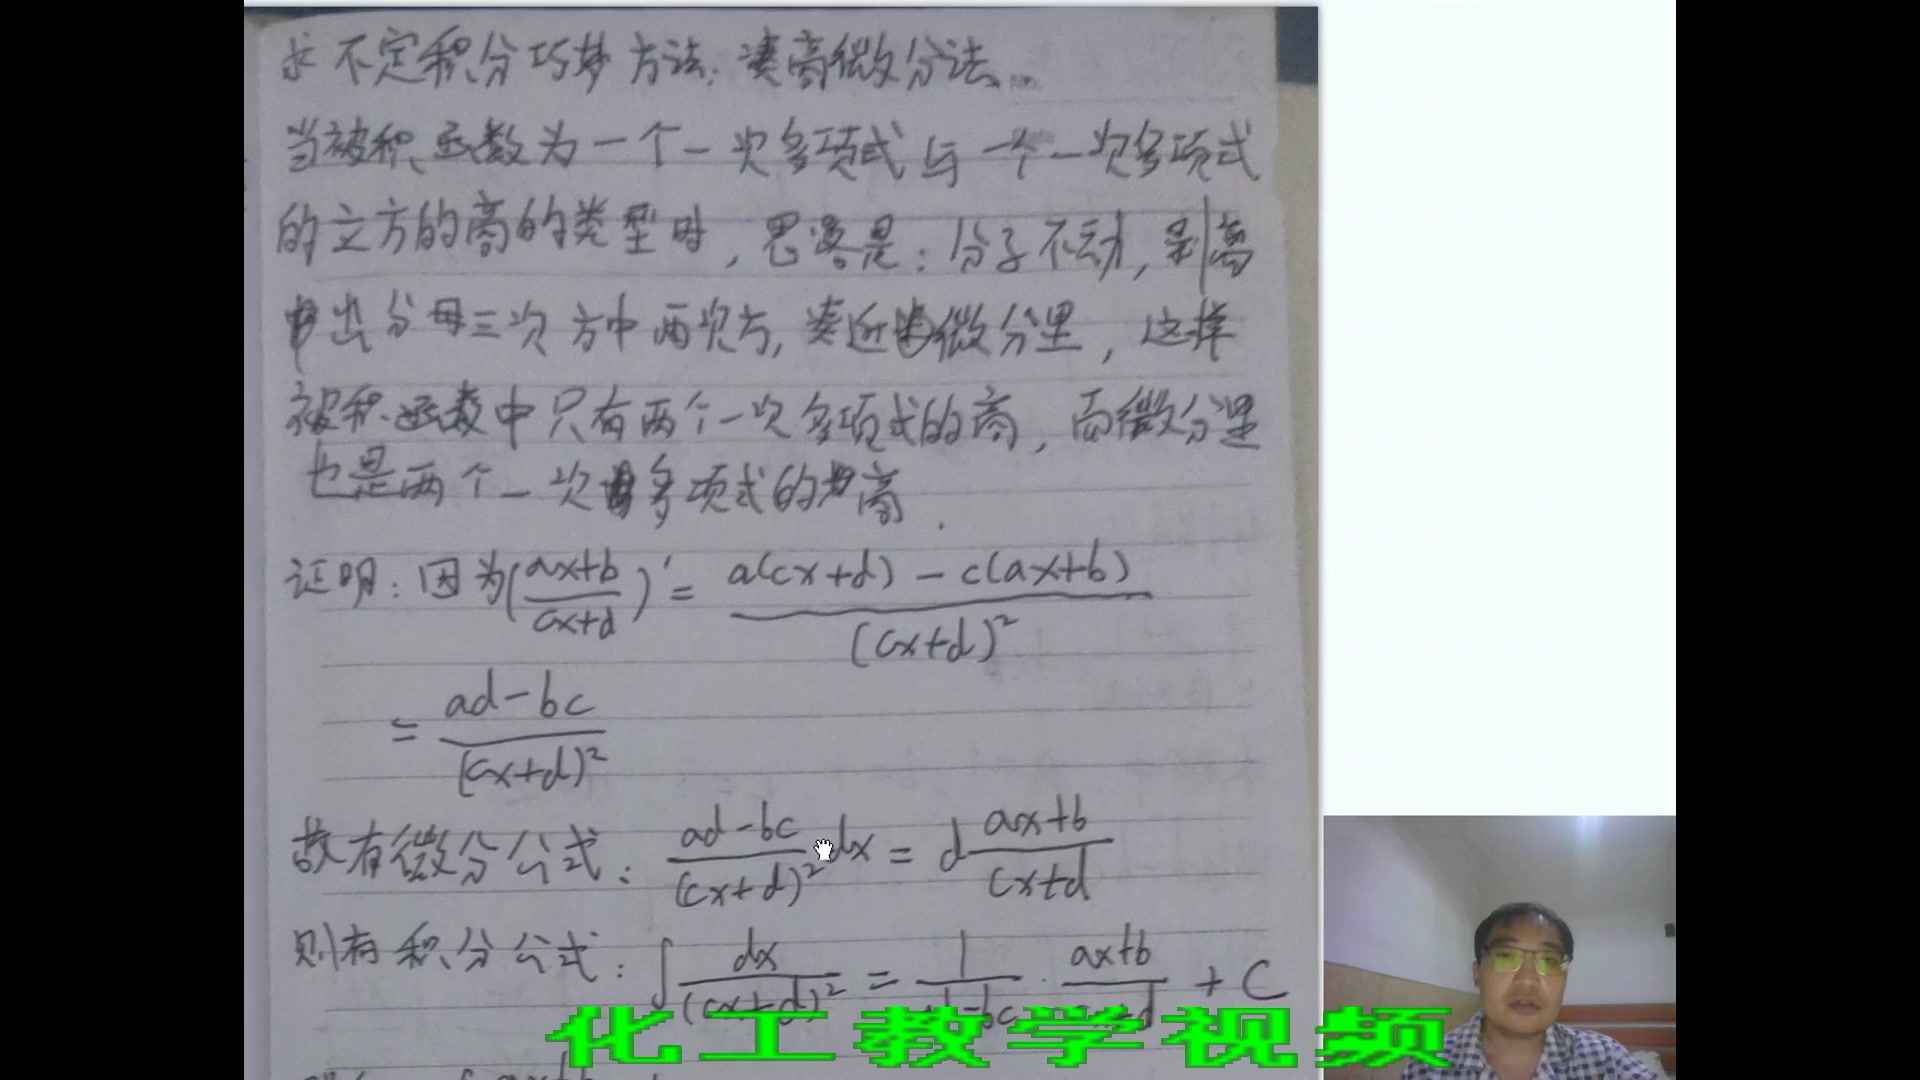 求不定积分巧妙方法:凑商微分法
当被积函数为一个一次多项式与一个一次多项式
的立方的商的类型时,思路是:分子不动,剥离
出分母三次方中两次方,凑近微分里,这样
被积函数中只有两个一次多项式的商,而微分里
也是两个一次多项式的商.
证明:因为(\frac{ax+b}{cx+d})' = \frac{a(cx+d) - c(ax+b)}{(cx+d)^2}
= \frac{ad-bc}{(cx+d)^2}
故有微分公式: \frac{ad-bc}{(cx+d)^2}dx = d\frac{ax+b}{cx+d}
则有积分公式: \int \frac{dx}{(cx+d)^2} = \frac{1}{ad-bc} · \frac{ax+b}{cx+d} + C
化工教学视频